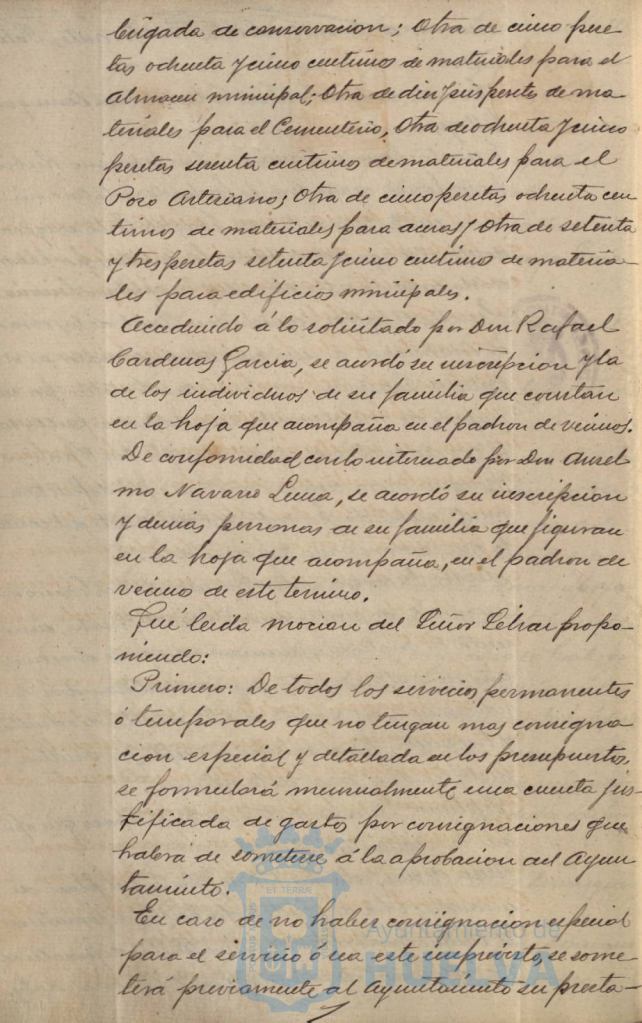 brigada de conservacion; Otra de cinco pese-
tas ochenta y cinco centimos de materiales para el
Almacen municipal; Otra de diez y seis pesetas de ma-
teriales para el Cementerio, Otra de ochenta y cinco
pesetas sesenta centimos de materiales para el
Pozo Artesiano; Otra de cinco pesetas ochenta cen
timos de materiales para aceras y Otra de setenta
y tres pesetas setenta y cinco centimos de materia-
les para edificios municipales.
Accediendo á lo solicitado por Don Rafael
Cardenas Garcia, se acordó su inscripcion y la
de los individuos de su familia que constan
en la hoja que acompaña en el padron de vecinos.
De conformidad con lo interesado por Don Ansel
mo Navarro Luna, se acordó su inscripcion
y demás personas de su familia que figuran
en la hoja que acompaña, en el padron de
vecino de este termino.
Fué leida mocion del Señor propo-
niendo:
Primero: De todos los servicios permanentes
ó temporales que no tengan mas consigna
cion especial y detallada en los presupuestos,
se formulará mensualmente una cuenta jus-
tificada de gastos por consignaciones que
habrá de someterse á la aprobacion del Ayun
tamiento.
En caso de no haber consignacion especial
para el servicio ó sea este imprevisto, se some
terá previamente al Ayuntamiento su presta-
Ayuntamiento de
HUELVA